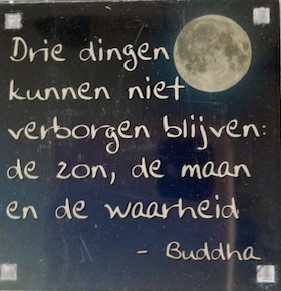 Drie dingen
kunnen niet
verborgen blijven:
de zon, de maan
en de waarheid
- Buddha